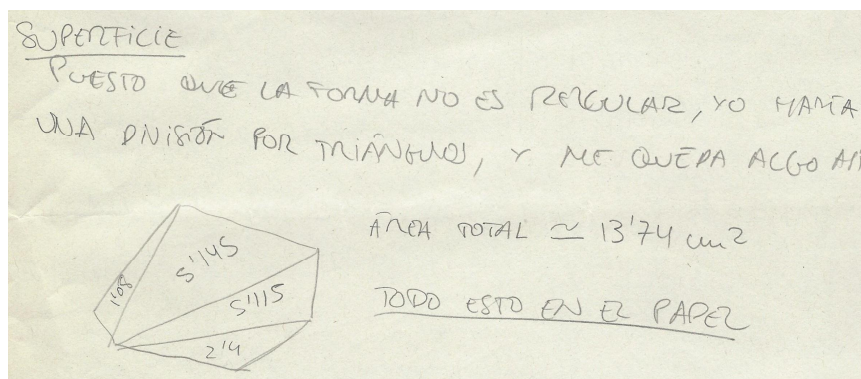 SUPERFICIE
PUESTO QUE LA FORMA NO ES REGULAR, YO HARÍA
UNA DIVISIÓN POR TRIÁNGULOS, Y ME QUEDA ALGO ASÍ
1'08
5'145
5'115
2'4
ÁREA TOTAL ≃ 13'74 cm2
TODO ESTO EN EL PAPEL